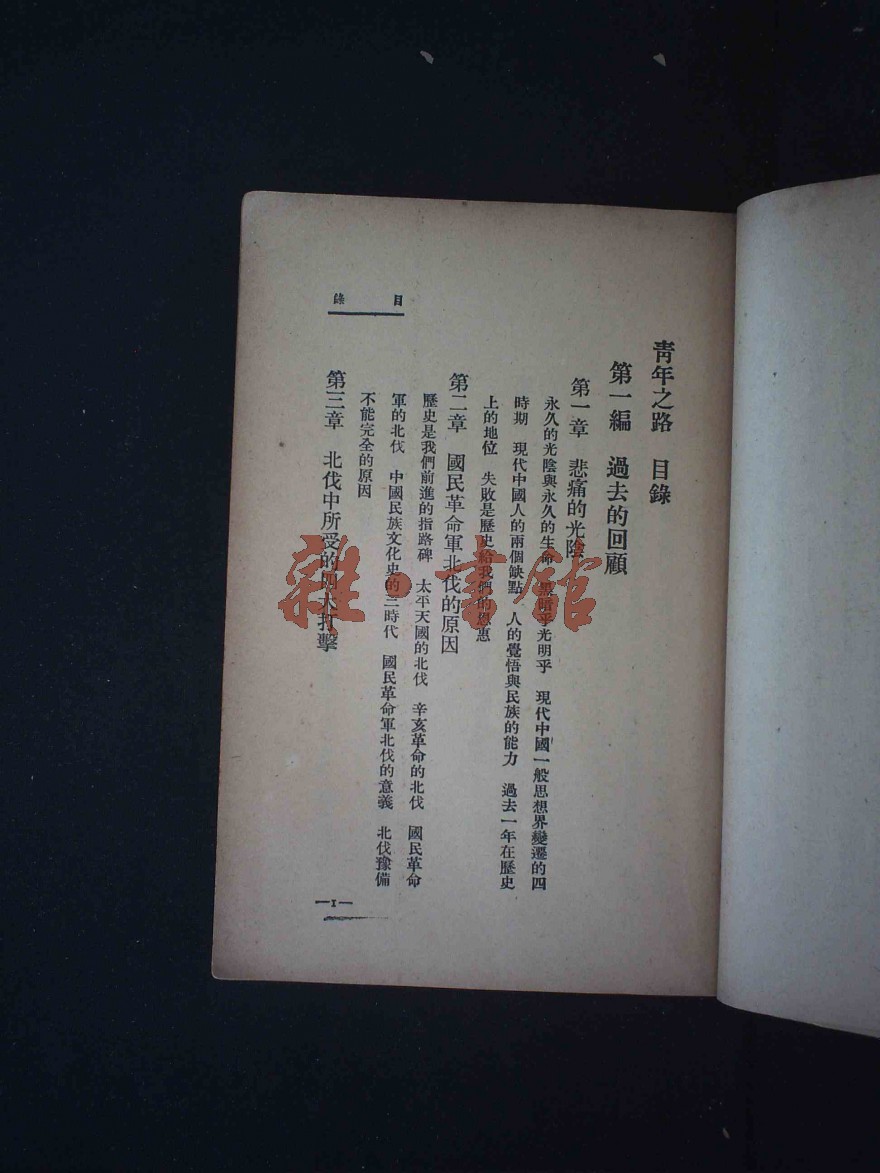 青年之路　目錄
第一編　過去的回顧
第一章　悲痛的光陰
永久的光陰與永久的生命　黑暗乎光明乎　現代中國一般思想界變遷的四
時期　現代中國人的兩個缺點　人的覺悟與民族的能力　過去一年在歷史
上的地位　失敗是歷史給我們的恩惠
第二章　國民革命軍北伐的原因
歷史是我們前進的指路碑　太平天國的北伐　辛亥革命的北伐　國民革命
軍的北伐　中國民族文化史的三時代　國民革命軍北伐的意義　北伐豫備
不能完全的原因
第三章　北伐中所受的四大打擊
目錄
—1—
雜·書館